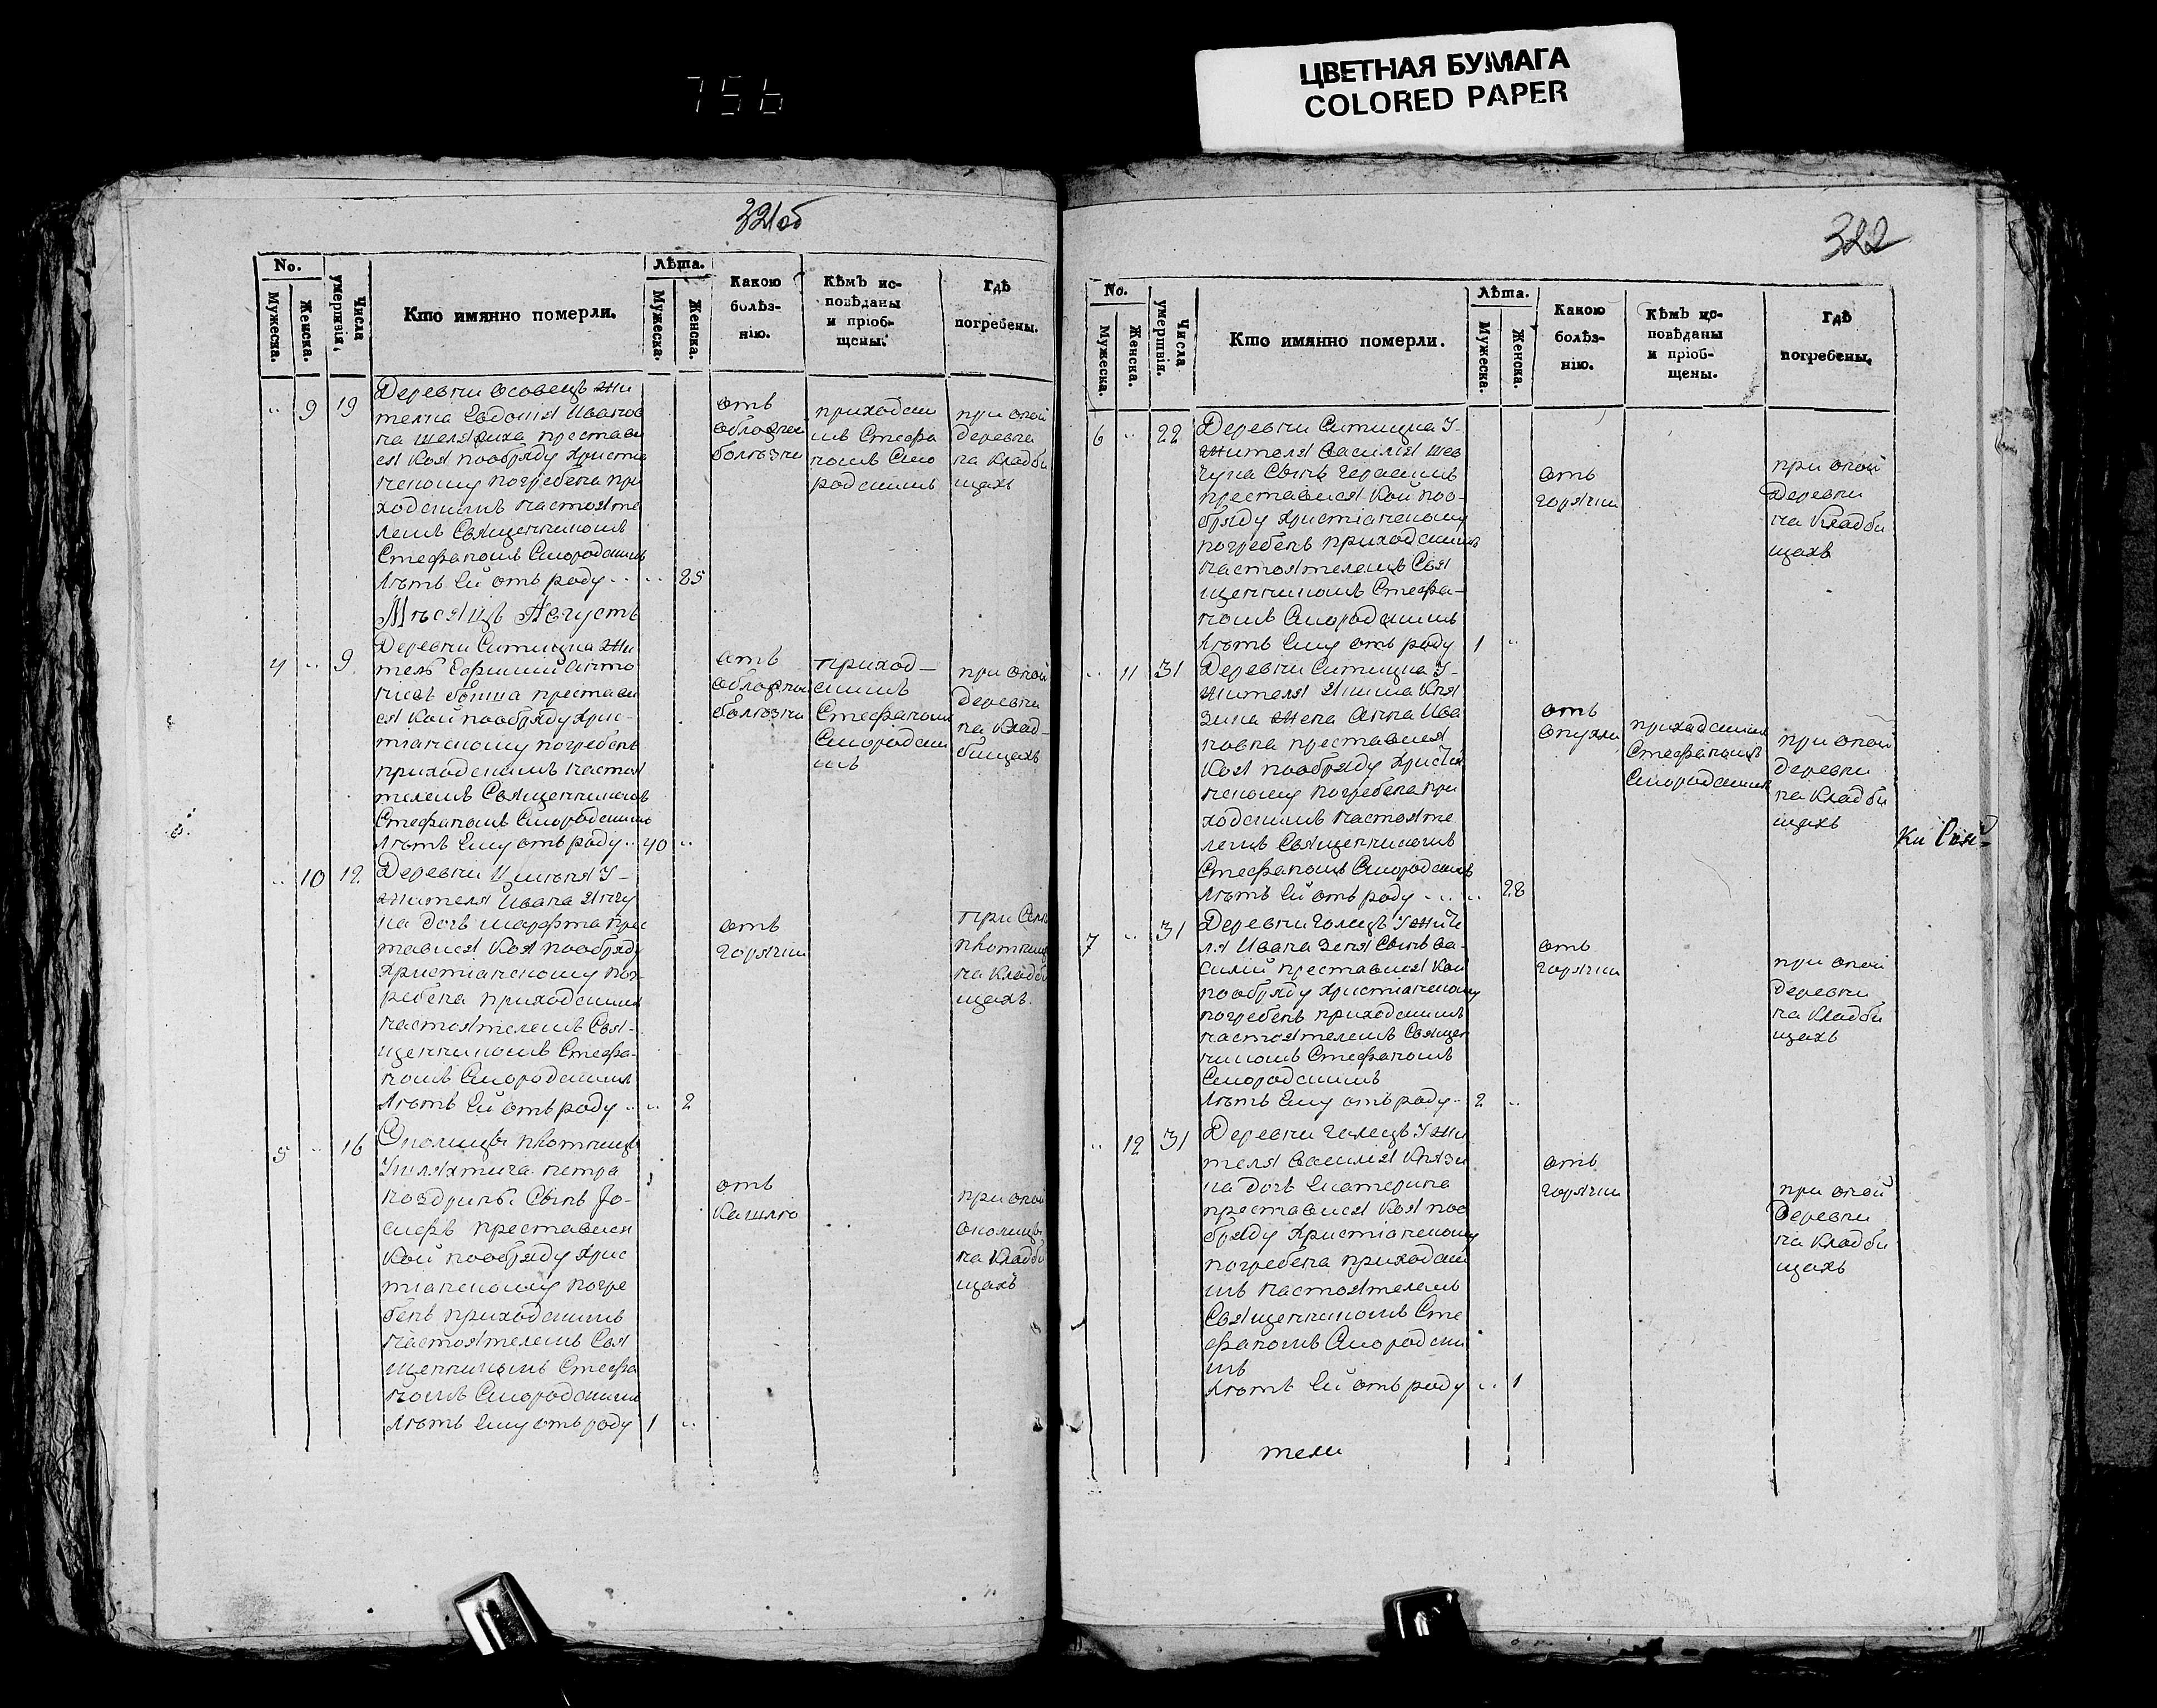 756
ЦВЕТНАЯ БУМАГА
COLORED PAPER
321об
No.
Мужеска.
Женска.
Числа умертвія.
Кто имянно померли.
Лѣта.
Мужеска.
Женска.
Какою болѣз-
нію.
Кѣмъ ис-
повѣданы
и пріоб-
щены.
Гдѣ
погребены.
9 19
Деревни Осовецъ жи
телка Евдокія Иванов
на преставис
ся коя пообряду Христиа
нскому погребена при
ходскимъ настояте
лемъ Священникомъ
Стефаномъ Смородскимъ
Лѣтъ ей отъ роду 85
отъ
облозней
болѣзни
приходски
мъ Стефа
номъ Смо
родскимъ
при оной
деревне
на кладби
щахъ
Мѣсяцъ Августъ
4 9
Деревни Ситицка жи
тель Ефимій Анто
преставис
ся кой пообряду Хрис-
тіанскому погребенъ
приходскимъ настоя
телемъ Священникомъ
Стефаномъ Смородскимъ
Лѣтъ ему отъ роду 40
отъ
облозной
болѣзни
приход-
скимъ
Стефаномъ
Смородски
мъ
при оной
деревни
на клад-
бищахъ
10 12
Деревни
жителя Ивана
ка дочь Марфта прес
тавися коя пообряду
Христіанскому пог
ребена приходскимъ
настоятелемъ Свя-
щенникомъ Стефа-
номъ Смородскимъ
Лѣтъ ей отъ роду 2
отъ
горячки
при
на кладби
щахъ
5 16
Околицы Плотница
Шляхтича Петра
сынъ Іо-
сифъ преставися
кой пообряду Хрис
тіанскому погре
бенъ приходскимъ
настоятелемъ Свя
щенникомъ Стефа
номъ Смородскимъ
Лѣтъ ему отъ роду 1
отъ
кашлю
при оной
околицы
на кладби
щахъ
322
No.
Мужеска.
Женска.
Числа умертвія.
Кто имянно померли.
Лѣта.
Мужеска.
Женска.
Какою
болѣз-
нію.
Кѣмъ ис-
повѣданы
и пріоб-
щены.
Гдѣ
погребены.
6 22
Деревни Ситицка У-
жителя Василія Шев
чука сынъ Герасимъ
преставися кой поо-
бряду Христіанскому
погребенъ приходскимъ
настоятелемъ Свя
щенникомъ Стефа-
номъ Смородскимъ
Лѣтъ ему отъ роду 1
отъ
горячки
при оной
деревни
на кладби
щахъ
11 31
Деревни Ситицка У-
жителя Якима Кня
зика жена Анна Ива
новна преставися
коя пообряду Христіа
нскому погребена при
ходскимъ настояте
лемъ Священникомъ
Стефаномъ Смородскимъ
Лѣтъ ей отъ роду 28
отъ
опухли
приходскимъ
Стефаномъ
Смородскимъ
при оной
деревни
на кладби
щахъ
7 31
Деревни Голецъ У жите
ля Ивана Зеня сынъ Ва-
силій преставися кой
пообряду Христіанскому
погребенъ приходскимъ
настоятелемъ Священ
никомъ Стефаномъ
Смородскимъ
Лѣтъ ему отъ роду 2
отъ
горячки
при оной
деревни
на кладби
щахъ
12 31
Деревни Голецъ У жи
теля Василія Князи
ка дочь Екатерина
преставися коя поо
бряду Христіанскому
погребена приходски
мъ настоятелемъ
Священникомъ Сте
фаномъ Смородски
мъ
Лѣтъ ей отъ роду 1
отъ
горячки
при оной
деревни
на кладби
щахъ
тели